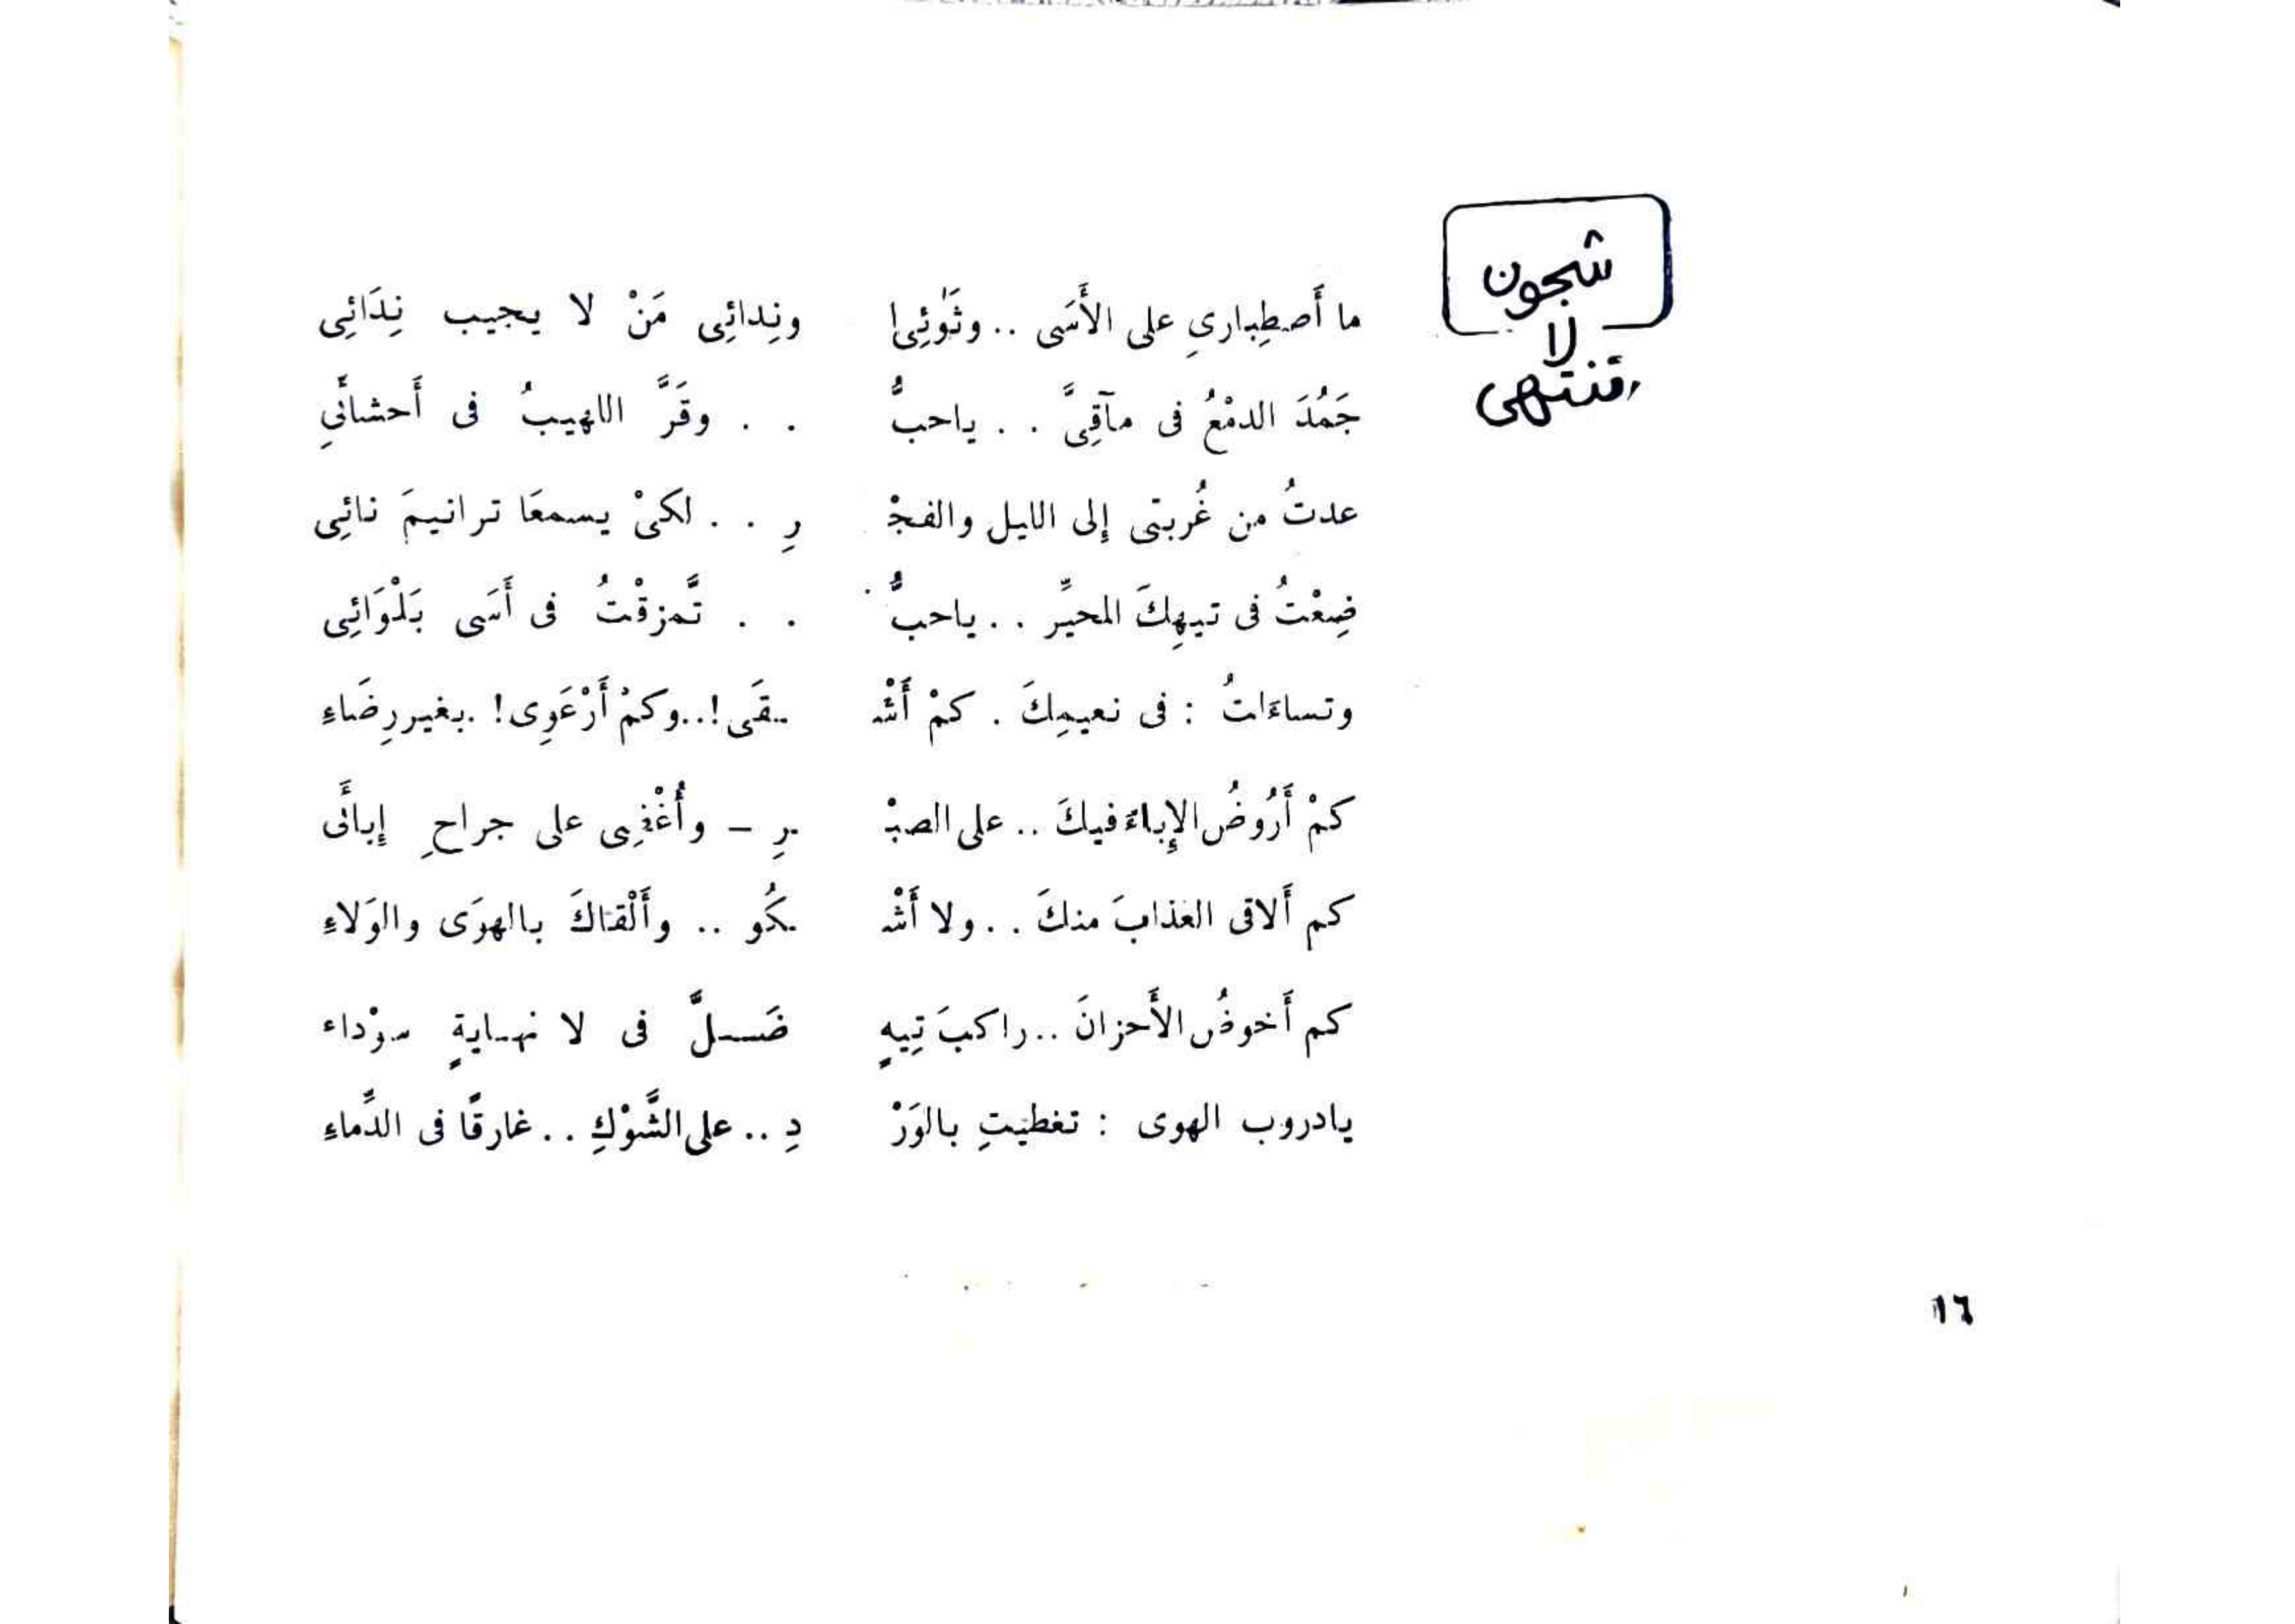 شجون
لا
تنتهى
ما أَصطِبارىِ على الأَسَى .. وثَوٰئِى! ونِدائِى مَنْ لا يجيب نِدَائِى
جَمُدَ الدمْعُ فى مآقِىَّ . . ياحبُّ . . وقَرَّ اللهيبُ فى أَحشائىِ
عدتُ من غُربتى إلى الليل والفجْ رِ . . لكىْ يسمعَا ترانيمَ نائِى
ضِعْتُ فى تيهِكَ المحيِّر . . ياحبُّ . . تَّمزقْتُ فى أَسَى بَلْوَائِى
وتساءَلتُ : فى نعيمِكَ . كمْ أَشْـ ـقَى !..وكمْ أَرْعَوِى! .بغير رِضَاءِ
كمْ أَرُوضُ الإِباءَ فيكَ .. على الصبْـ ـرِ – وأُغْضِى على جراحِ إبائَى
كم أَلاقى العذابَ منكَ . . ولا أَشْـ ـكُو .. وأَلْقاكَ بالهوَى والوَلاءِ
كم أَخوضُ الأَحزانَ .. راكبَ تِيهٍ ضَـلَّ فى لا نهـايةٍ سوْداء
يادروب الهوى : تغطيتِ بالوَرْ دِ .. على الشَّوْكِ . . غارقًا فى الدِّماءِ
١٦